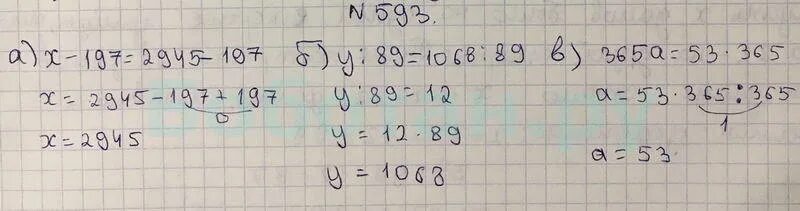 N 593.
а) x - 197 = 2945 - 197
x = 2945 - 197 + 197
0
x = 2945
б) y : 89 = 1068 : 89
y : 89 = 12
y = 12 · 89
y = 1068
в) 365a = 53 · 365
a = 53 · 365 : 365
1
a = 53.